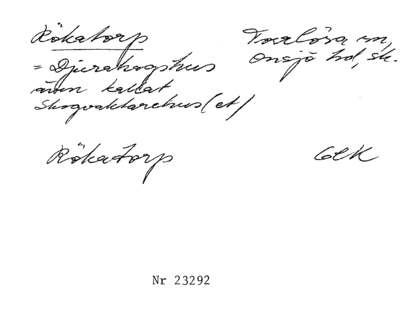 Rökatorp Torrlösa sn,
= Djurahagshus Onsjö hd, Sk.
även kallat
Skogvaktarehus(et)
Rökatorp GEK
Nr 23292